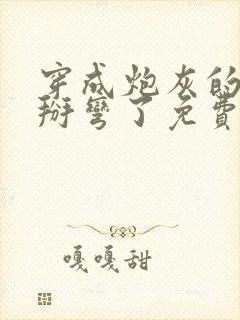 穿成炮灰的
掰彎了免費
嘎嘎甜